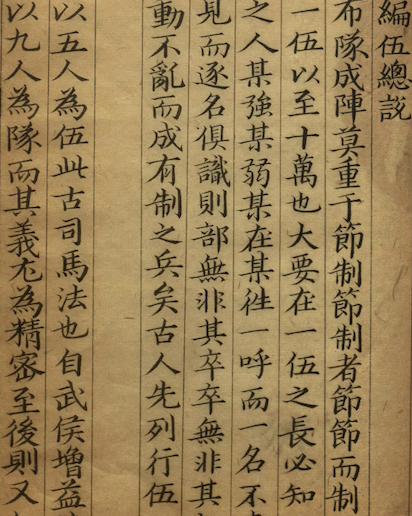 編伍總説
布隊成陣莫重于節制節制者節節而制
一伍以至十萬也大要在一伍之長必知
之人某強某弱某在某徃一呼而一名不
見而逐名俱識則部無非其卒卒無非其
動不亂而成有制之兵矣古人先列行伍
以五人為伍此古司馬法也自武侯增益
以九人為隊而其義尤為精密至後則又